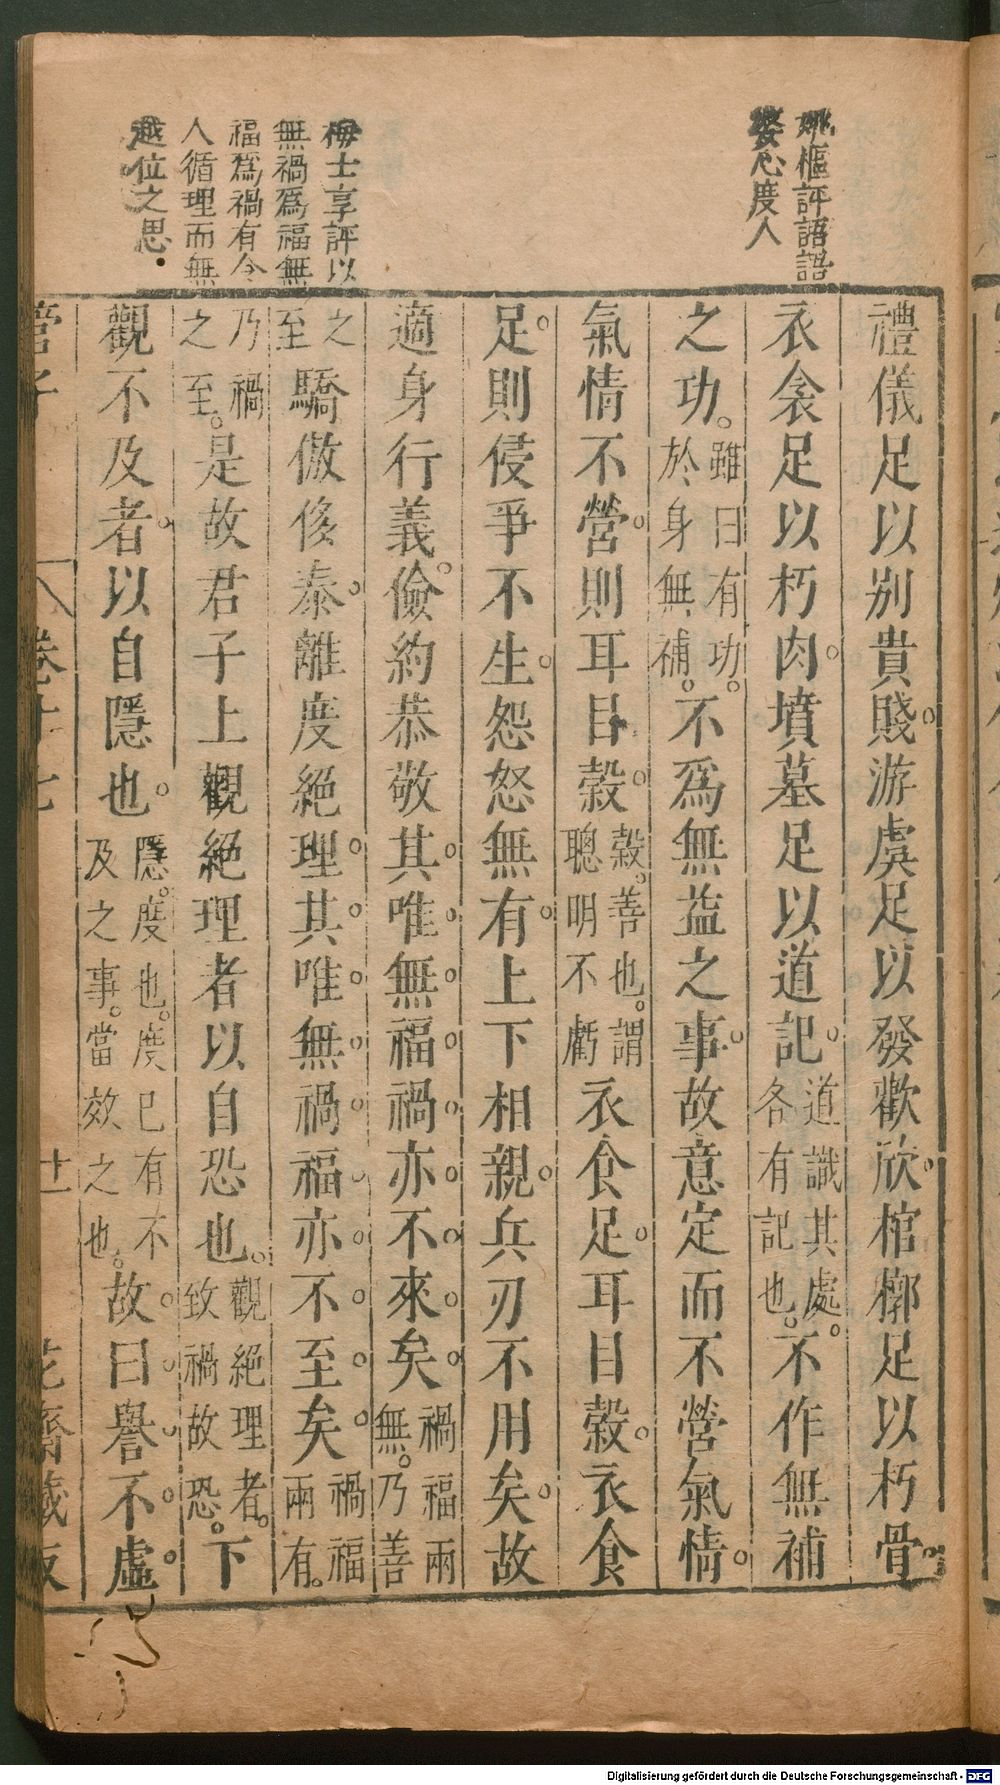 姚樞評語語
婆心度人
梅士享評以
無禍爲福無
福爲禍有令
人循理而無
越位之思
禮儀足以别貴賤游虞足以發歡欣棺槨足以朽骨
衣衾足以朽肉墳墓足以道記道識其處各有記也不作無補
之功雖曰有功於身無補不爲無益之事故意定而不營氣情
氣情不營則耳目穀穀善也謂聰明不虧衣食足耳目穀衣食
足則侵爭不生怨怒無有上下相親兵刃不用矣故
適身行義儉約恭敬其唯無福禍亦不來矣禍福兩無乃善
之至驕傲侈泰離度絕理其唯無禍福亦不至矣禍福兩有
乃禍之至是故君子上觀絕理者以自恐也觀絕理者致禍故恐下
觀不及者以自隱也隱度也度已有不及之事當效之也故曰譽不虛
管子
卷十七
廿
花齋藏板
Digitalisierung gefördert durch die Deutsche Forschungsgemeinschaft - DFG